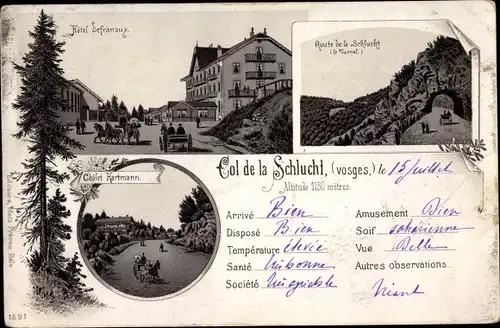 Hôtel Defranoux.
Route de la Schlucht
(le Tunnel.)
Châlet Hartmann.
Col de la Schlucht, (vosges,) le 15 juillet
Altitude 1150 mètres.
Arrivé Bien
Amusement Bien
Disposé Bien
Soif saharienne
Température élevée
Vue Belle
Santé
Autres observations
Société
Néant
1691